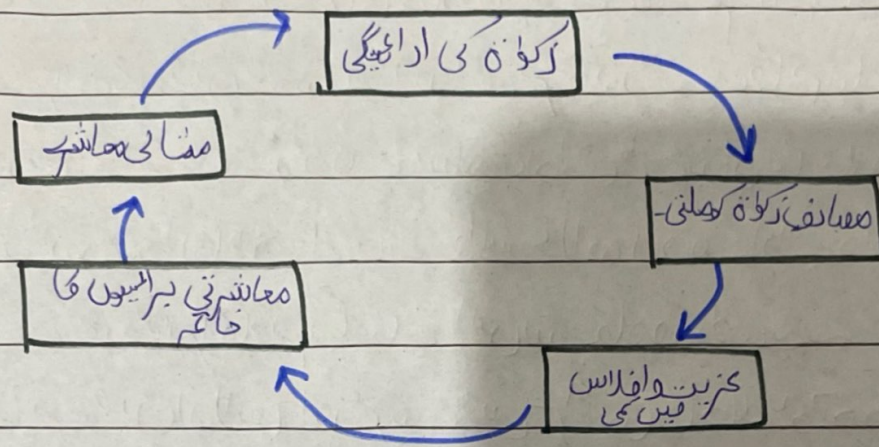 زکوٰۃ کی ادائیگی
مصارفِ زکوٰۃ کو ملتی۔
غربت و افلاس
میں کمی
معاشرتی برائیوں کا
خاتمہ
مثالی معاشرے